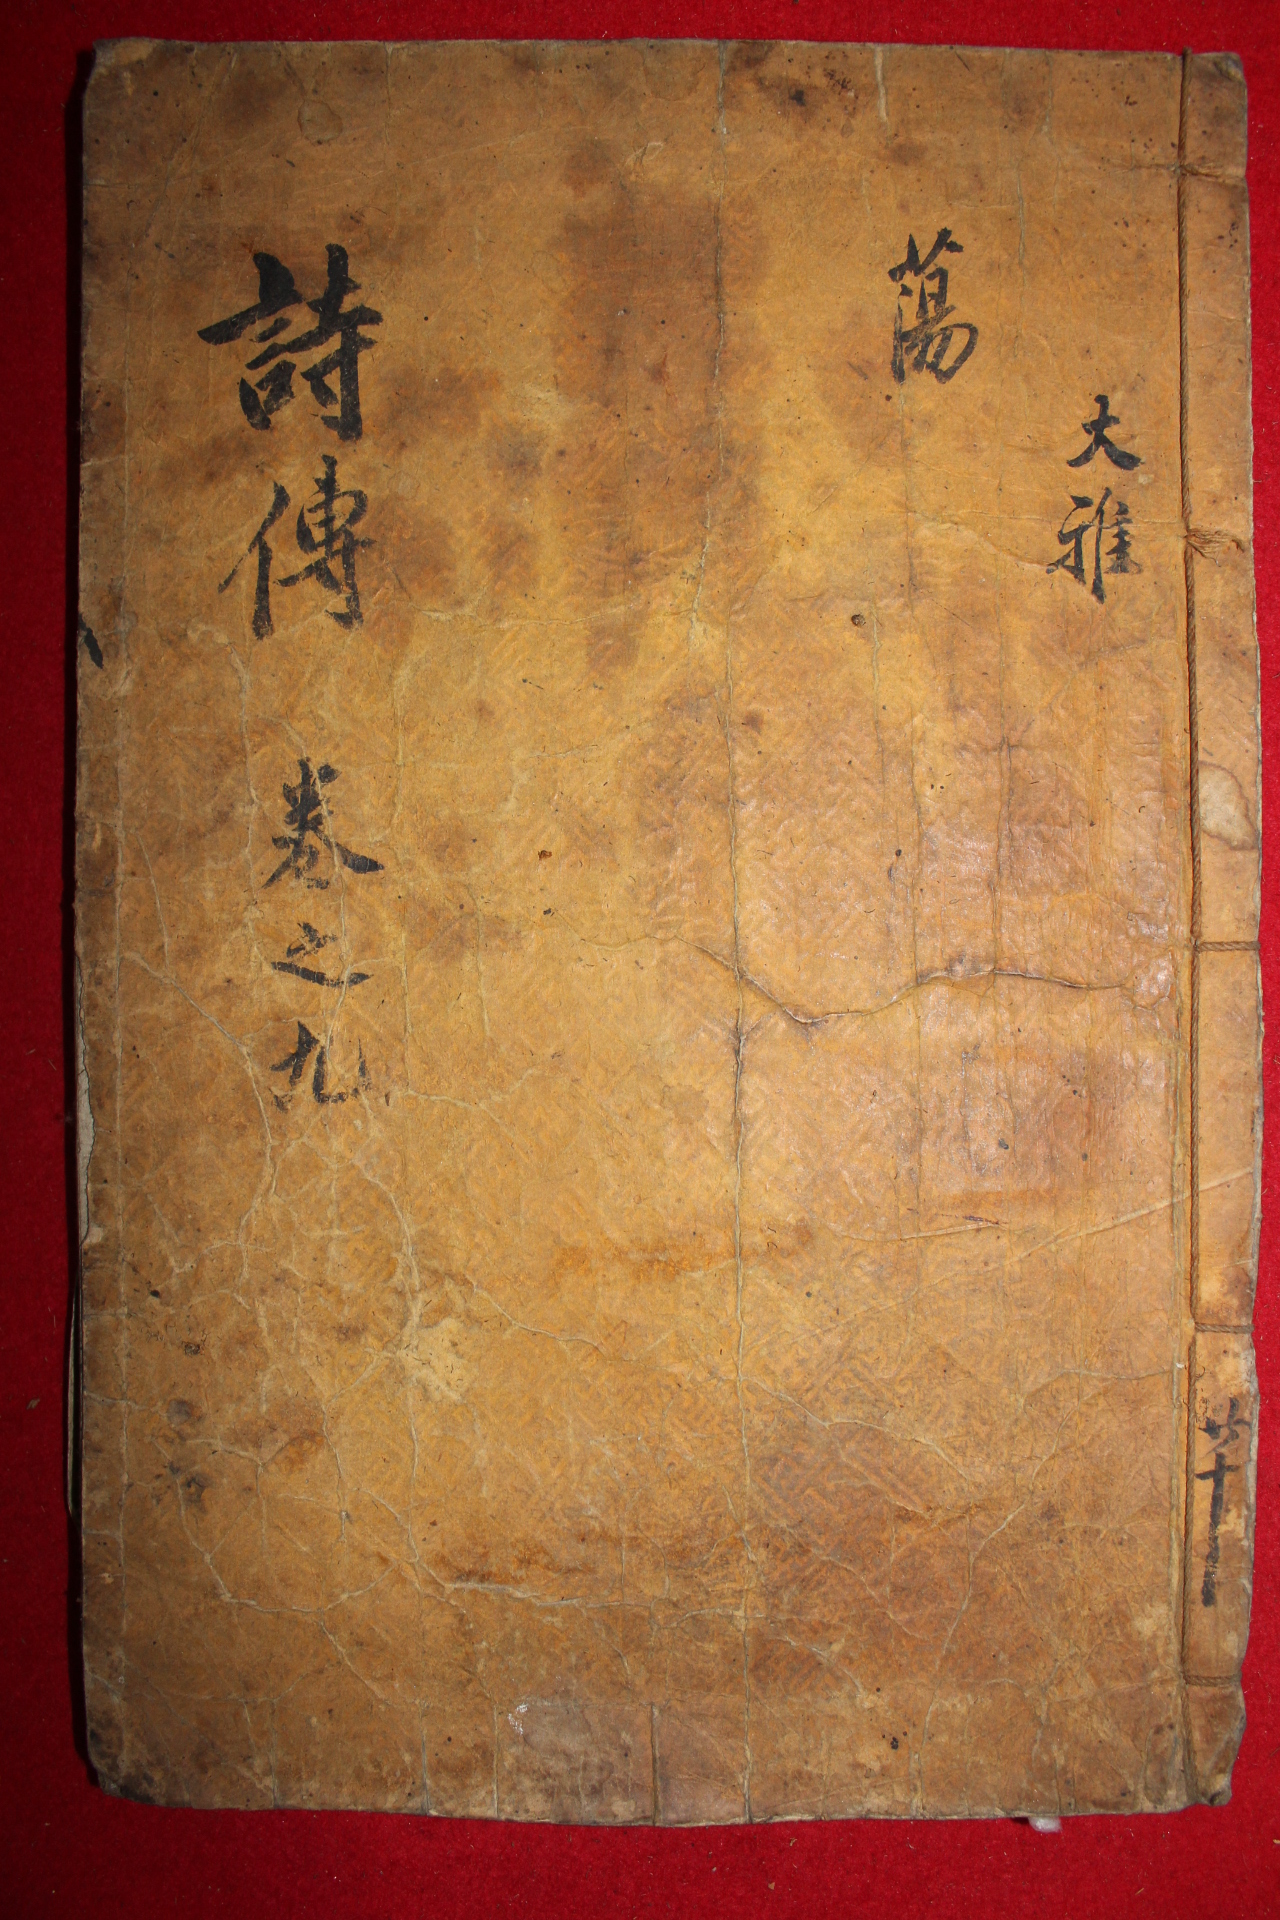 大雅
蕩
詩傳 卷之九
共十